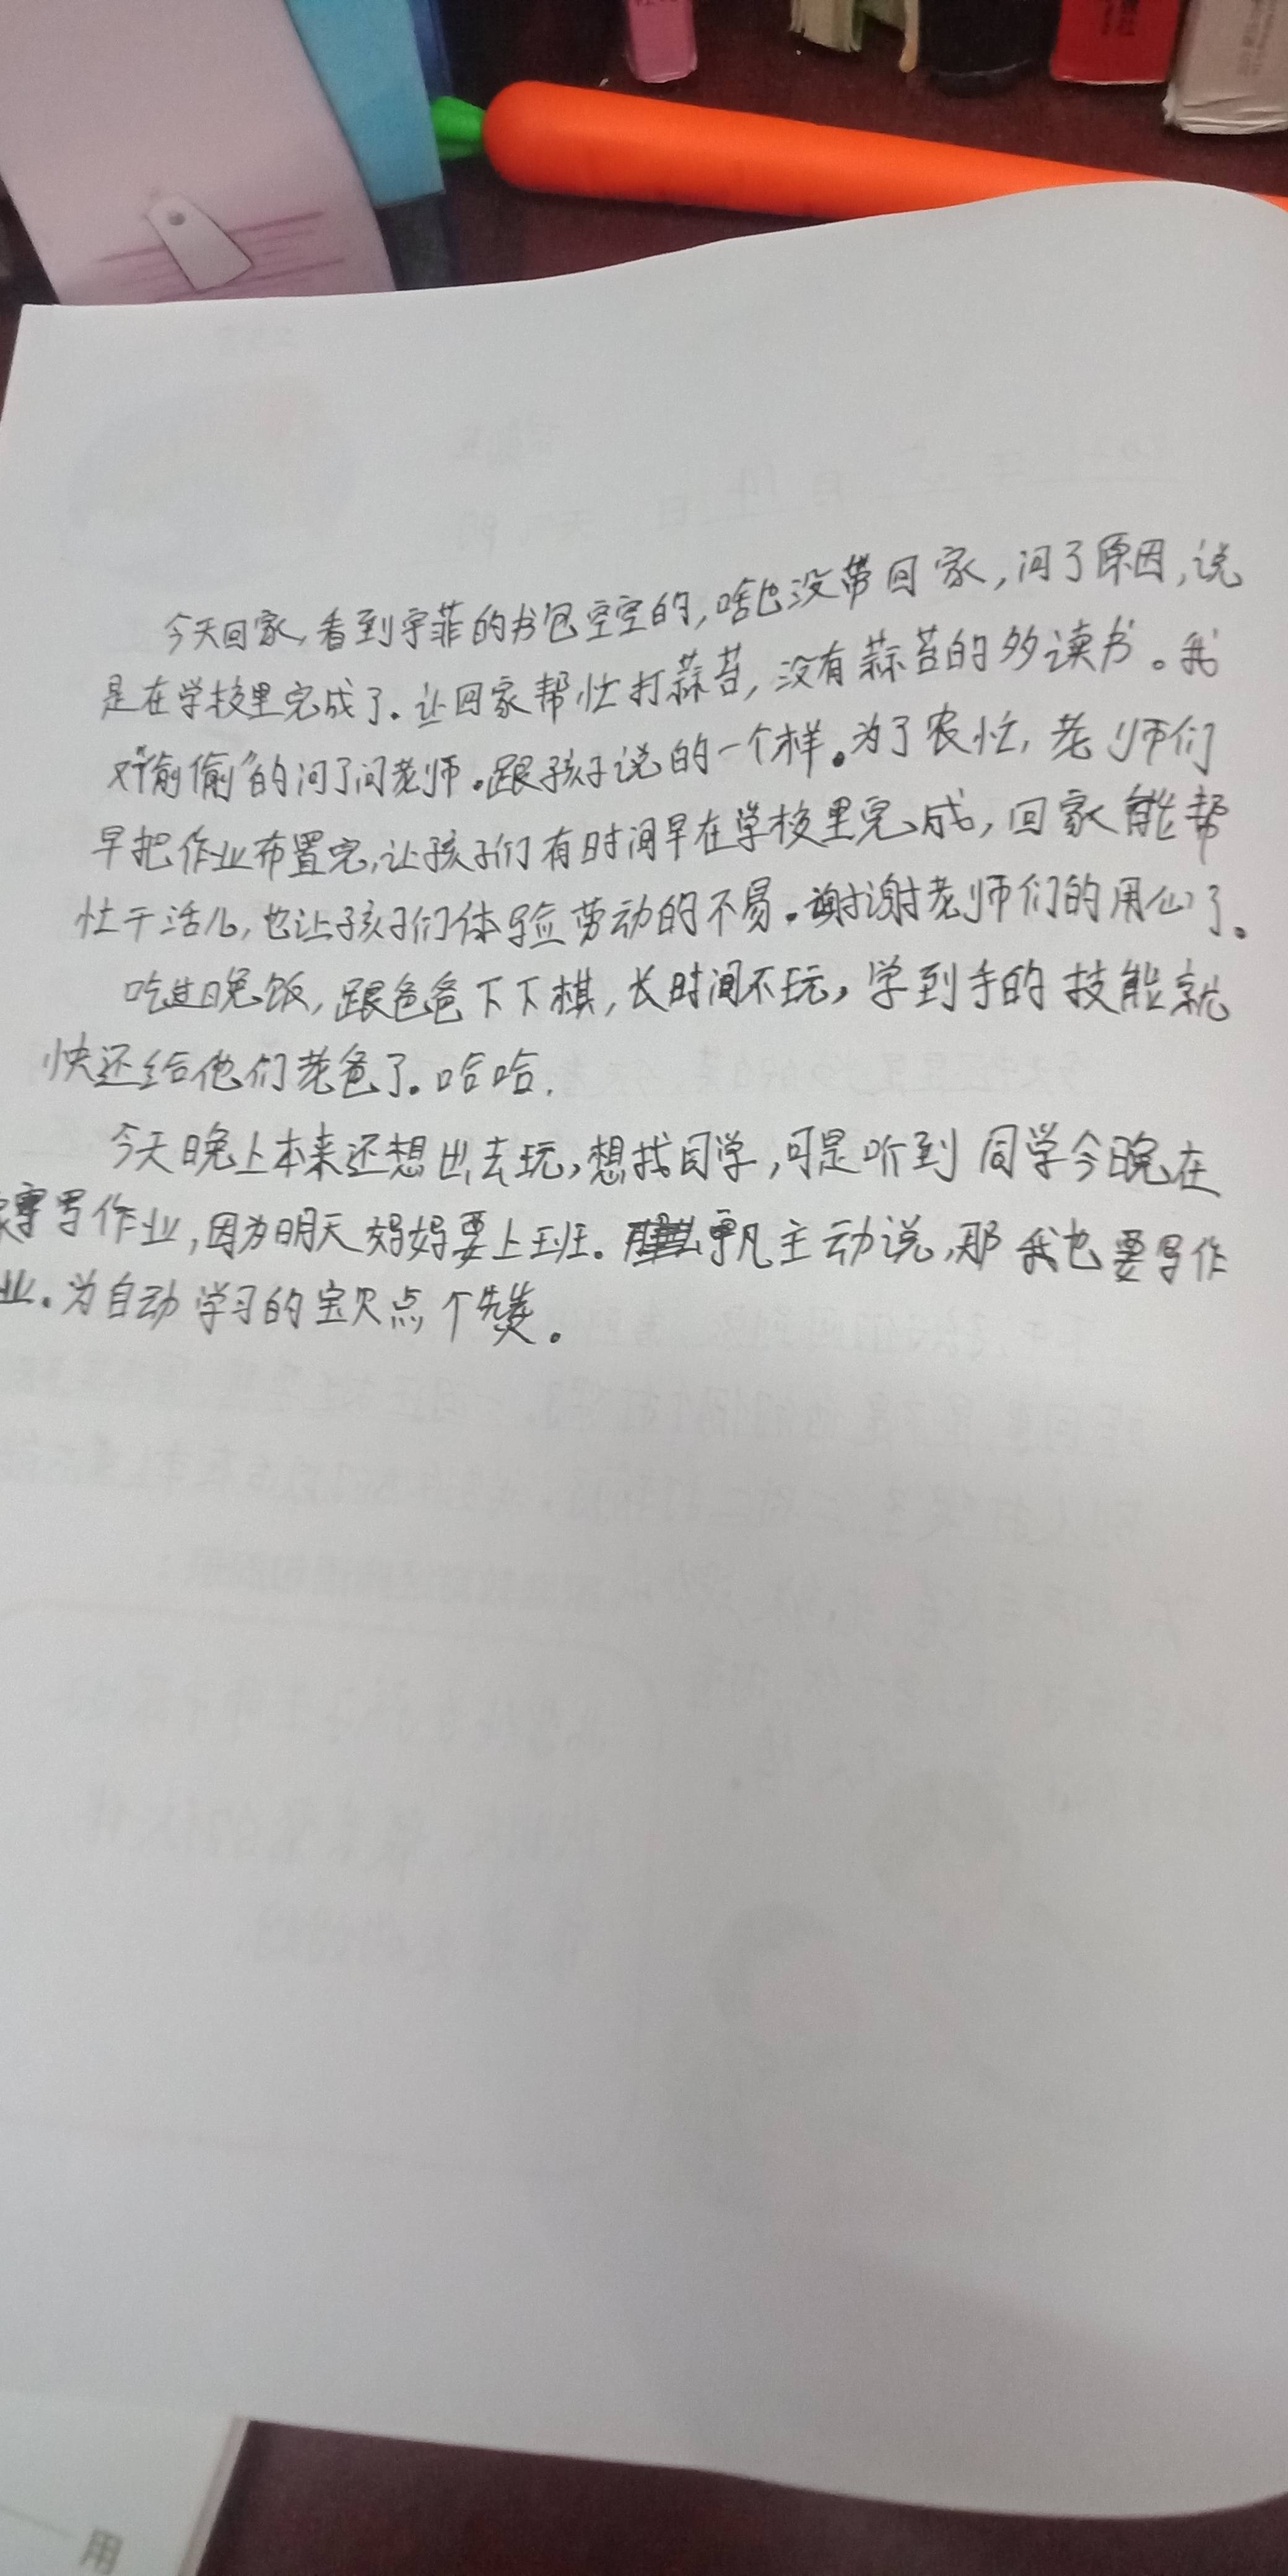 今天回家,看到宇菲的书包空空的,啥也没带回家,问了原因,说
是在学校里完成了.让回家帮忙打蒜苔,没有蒜苔的多读书。我
对"偷偷"的问了问老师。跟孩子说的一个样。为了农忙,老师们
早把作业布置完,让孩子们有时间早在学校里完成,回家能帮
忙干活儿,也让孩子们体验劳动的不易.谢谢老师们的用心了。
吃过晚饭,跟爸爸下下棋,长时间不玩,学到手的技能就
快还给他们老爸了.哈哈.
今天晚上本来还想出去玩,想找同学,可是听到同学今晚在
家写作业,因为明天妈妈要上班.宇凡主动说,那我也要写作
业.为自动学习的宝贝点个赞。
用